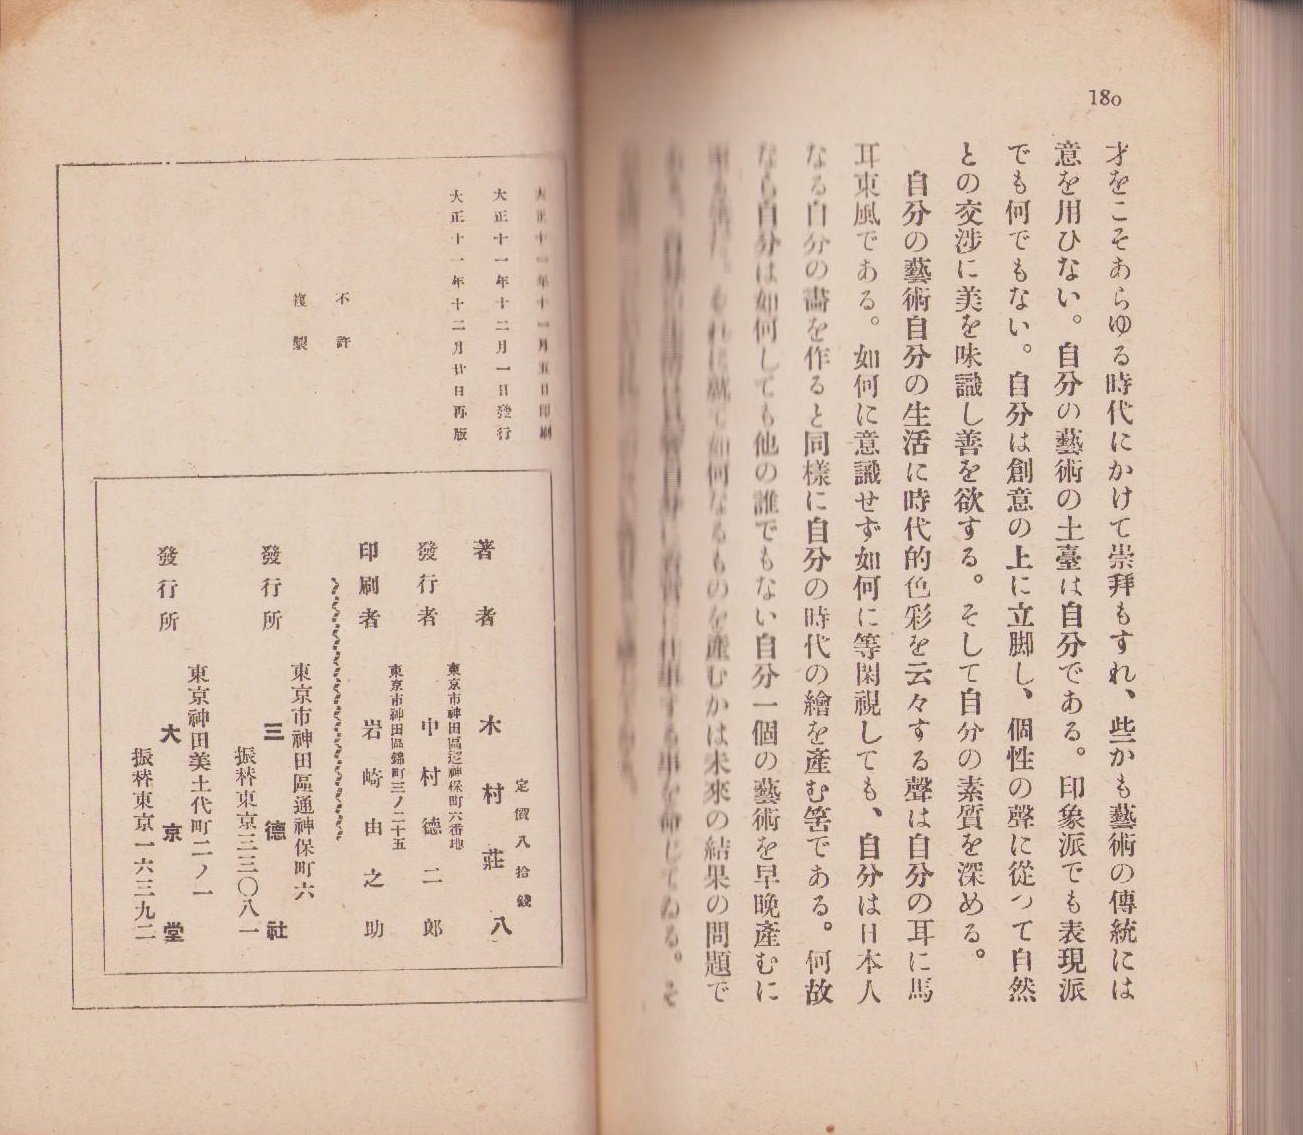 180
才をこそあらゆる時代にかけて崇拜もすれ、些かも藝術の傳統には
意を用ひない。自分の藝術の土臺は自分である。印象派でも表現派
でも何でもない。自分は創意の上に立脚し、個性の聲に從つて自然
との交渉に美を味識し善を欲する。そして自分の素質を深める。
自分の藝術自分の生活に時代的色彩を云々する聲は自分の耳に馬
耳東風である。如何に意識せず如何に等閑視しても、自分は日本人
なる自分の畵を作ると同樣に自分の時代の繪を產む筈である。何故
なら自分は如何しても他の誰でもない自分一個の藝術を早晩產むに
如何なるものを產むかは未來の結果の問題で
大正十一年十一月五日印刷
大正十一年十二月一日發行
大正十一年十二月廿日再版
不許
複製
定價八拾錢
著者 木村莊八
東京市神田區通神保町六番地
發行者 中村德二郎
東京市神田區錦町三ノ二十五
印刷者 岩崎由之助
東京市神田區通神保町六
發行所 三德社
振替東京三三〇八一
東京神田美土代町二ノ一
發行所 大京堂
振替東京一六三九二